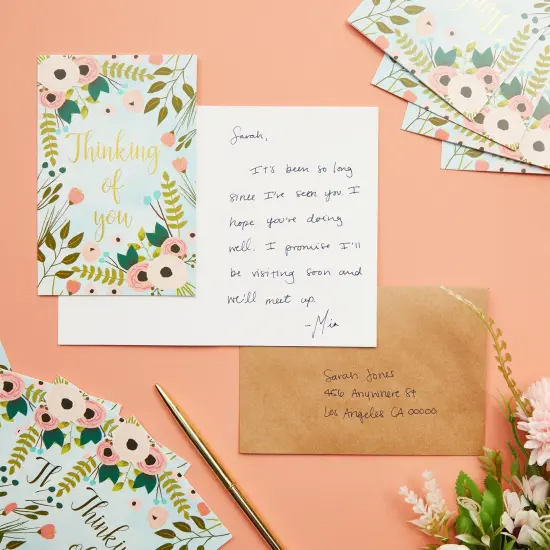 Thinking
of
you
Sarah,
It's been so long
since I've seen you. I
hope you're doing
well. I promise I'll
be visiting soon and
we'll meet up.
-Mia
Sarah Jones
456 Anywhere St
Los Angeles CA 00000
Thinking